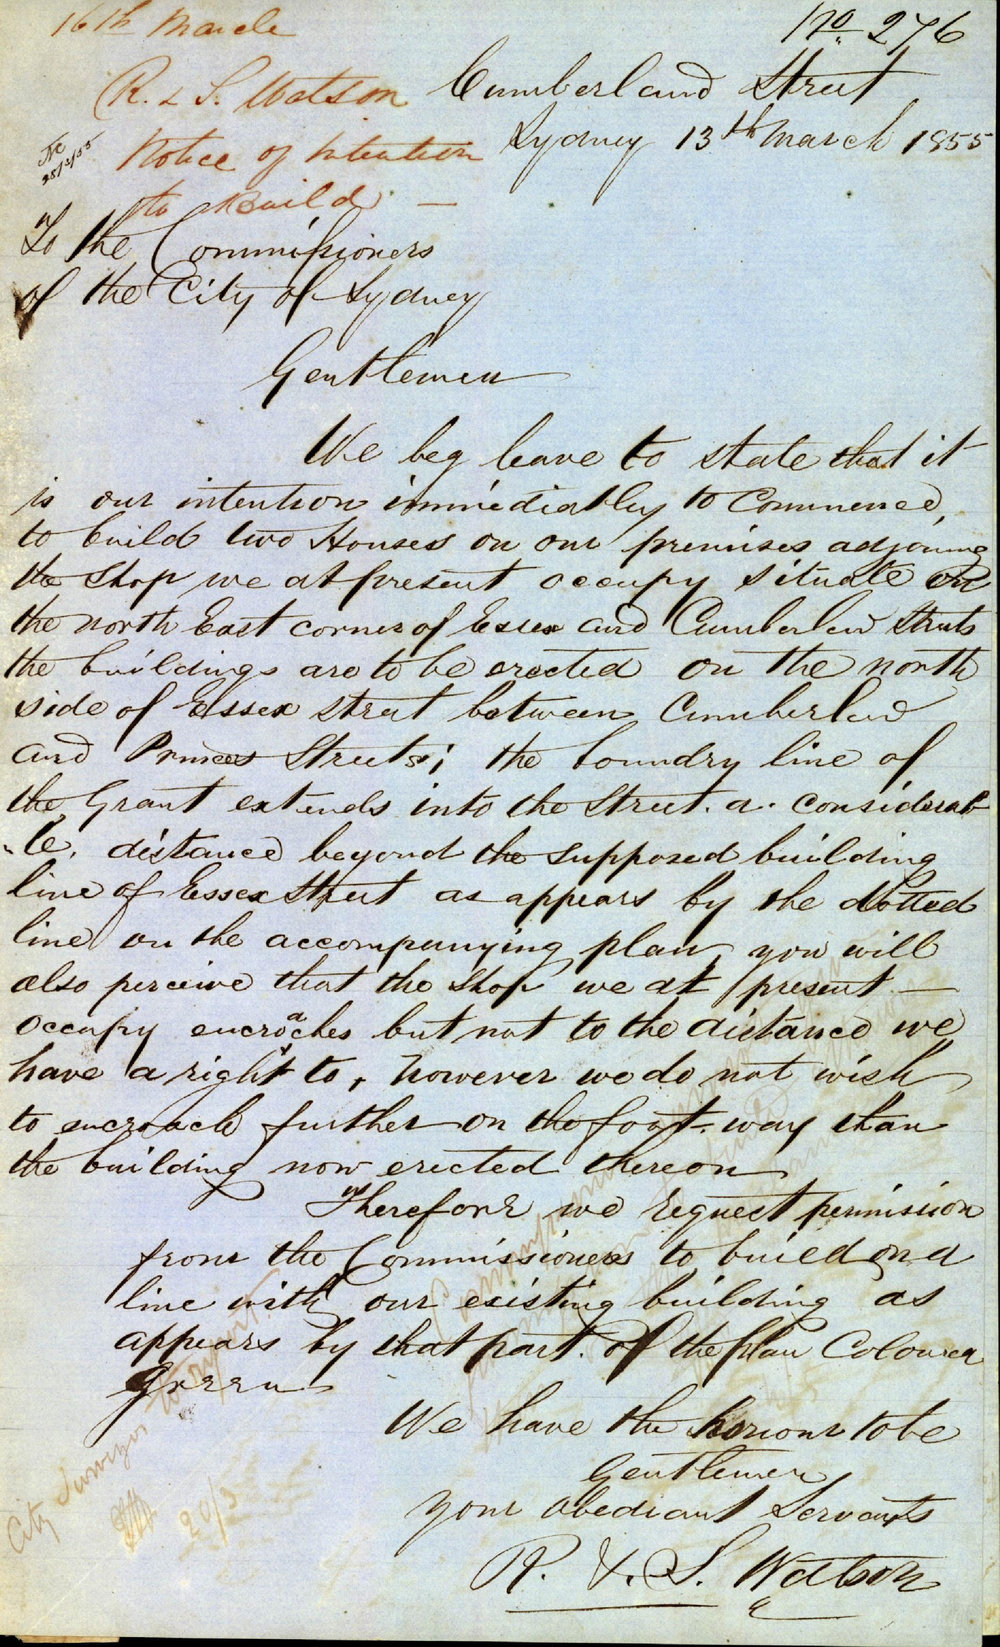 16th March
No. 276
R. & S. Watson
Cumberland Street
Notice of Intention
Sydney 13th March 1855
to Build —
28/3/55
To the Commissioners
of the City of Sydney
Gentlemen
We beg leave to state that it
is our intention immediatley to Commence,
to build two Houses on our premises adjoining
the Shop we at present occupy situate on
the north East corner of Essex and Cumberland Streets
the buildings are to be erected on the north
side of Essex Street between Cumberland
and Princes Streets; the boundry line of
the Grant extends into the Street. a. considerab-
-le. distance beyond the supposed building
line of Essex Street as appears by the dotted
line on the accompanying plan, you will
also perceive that the Shop we at present —
occupy encroaches but not to the distance we
have a right to, however we do not wish
to encroach further on the foot-way than
the building now erected thereon
Therefore we request permission
from the Commissioners to build on a
line with our existing building as
appears by that part. of the plan Coloured
Green
We have the honour to be
Gentlemen
your obediant Servants
R. & S. Watson
City Surveyor to report
20/3